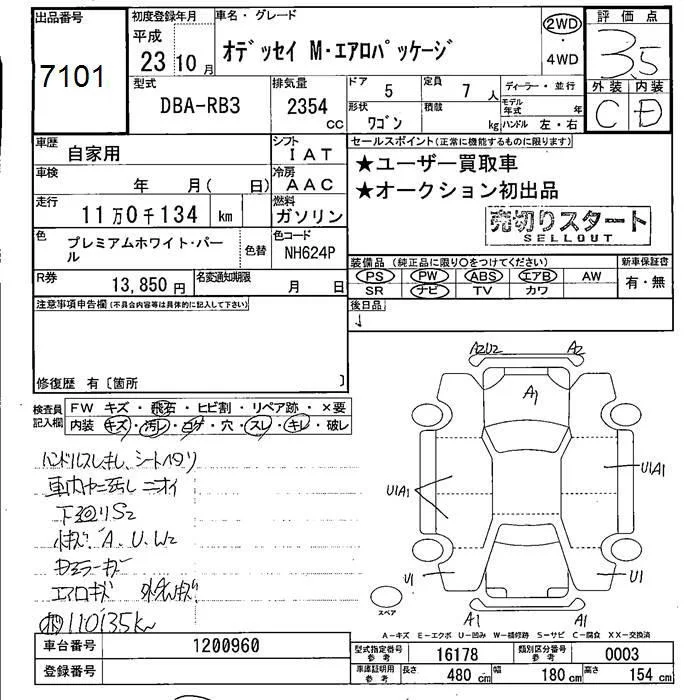 出品番号 初度登録年月 車名・グレード 2WD・4WD 評価点
7101 平成 23 10月 オデッセイ M・エアロパッケージ 3.5
型式 排気量 ドア 定員 ディーラー・並行 外装 内装
DBA-RB3 2354 CC 5 7人 モデル年式 年 C D
形状 積載 kg ハンドル 左・右
ワゴン
車歴 シフト セールスポイント(正常に機能するものに限ります)
自家用 IAT ★ユーザー買取車
車検 年 月( 日) 冷房 AAC ★オークション初出品
走行 11万0千134 km 燃料 ガソリン 売切りスタート
SELLOUT
色 プレミアムホワイト・パール 色替 色コード NH624P
装備品(純正品に限り○をつけてください) 新車保証書
PS PW ABS エアB AW 有・無
SR ナビ TV カワ
R券 13,850円 名変通知期限 月 日
注意事項申告欄(不具合内容等は具体的に記入して下さい) 後日品
修復歴 有〔箇所 〕
検査員記入欄 FW キズ・飛石・ヒビ割・リペア跡・×要
内装 キズ・汚レ・コゲ・穴・スレ・キレ・破レ
A2U2 A2
A1
ハンドルスレキレ、シートヘタリ
車内ヤニ汚レ ニオイ
下廻りS2
小キズ A.U.W2
ドアミラーキズ
エアロキズ
110135km
U1A1 U1A1
U1 U1
スペア A1 A1
A-キズ E-エクボ U-凹み W-補修跡 S-サビ C-腐食 XX-交換済
車台番号 1200960 型式指定番号 参考 16178 類別区分番号 参考 0003
登録番号 車庫証明用 参考 長さ 480cm 幅 180cm 高さ 154cm